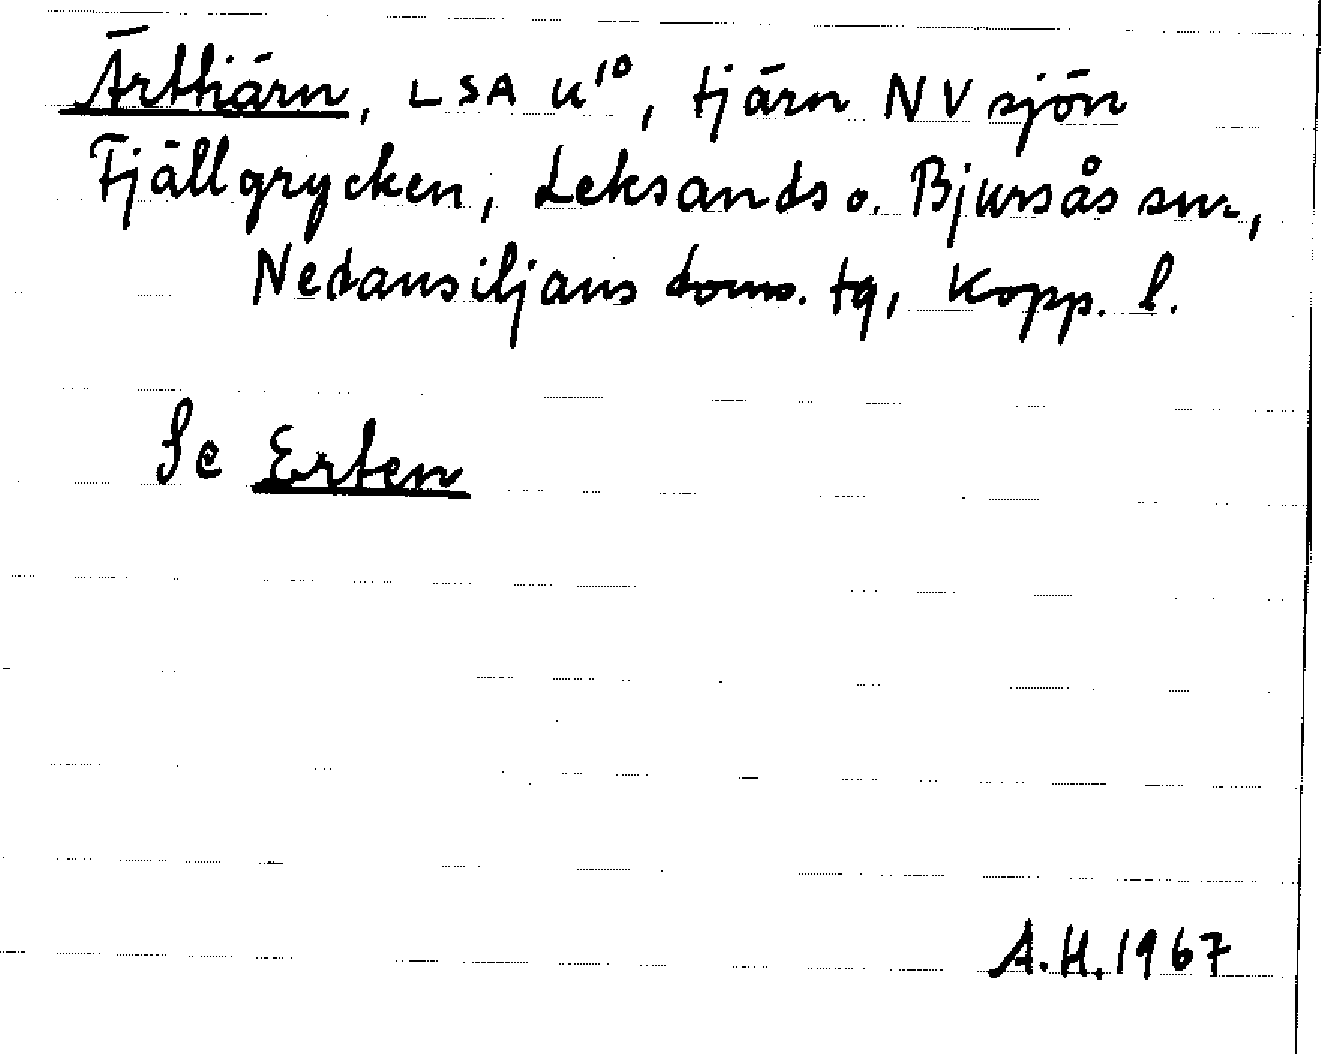 Ärttjärn, LSA u¹⁰, tjärn NV sjön
Fjällgrycken, Leksands o. Bjursås snr,
Nedansiljans doms. tg, Kopp. l.
Se Erten
A.H. 1967